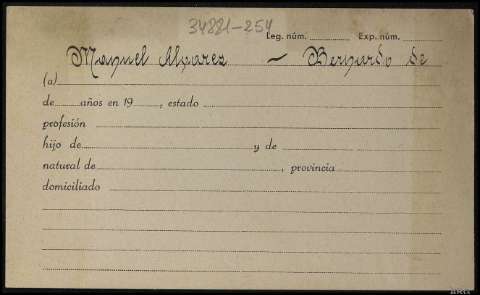 34881-254
Leg. núm. Exp. núm.
Manuel Alvarez - Bernardo de
(a)
de años en 19 , estado
profesión
hijo de y de
natural de , provincia
domiciliado